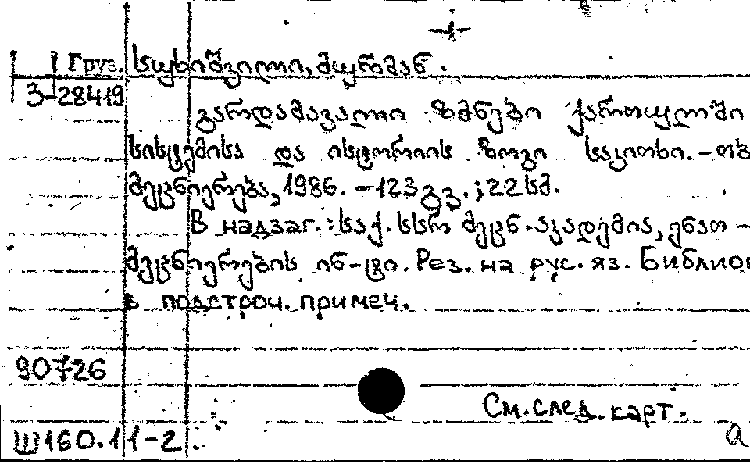 Груз. სუხიშვილი, მურმან.
3-28419
გარდამავალი ზმნები ქართულში
სისტემისა და ისტორიის ზოგი საკითხი. - თბ
მეცნიერება, 1986. - 123 გვ. ; 22 სმ.
В надзаг.: საქ. სსრ მეცნ. აკადემია, ენათ-
მეცნიერების ინ-ტი. Рез. на рус. яз. Библиог
в подстроч. примеч.
90726
См. след. карт.
Ш160.11-2
a